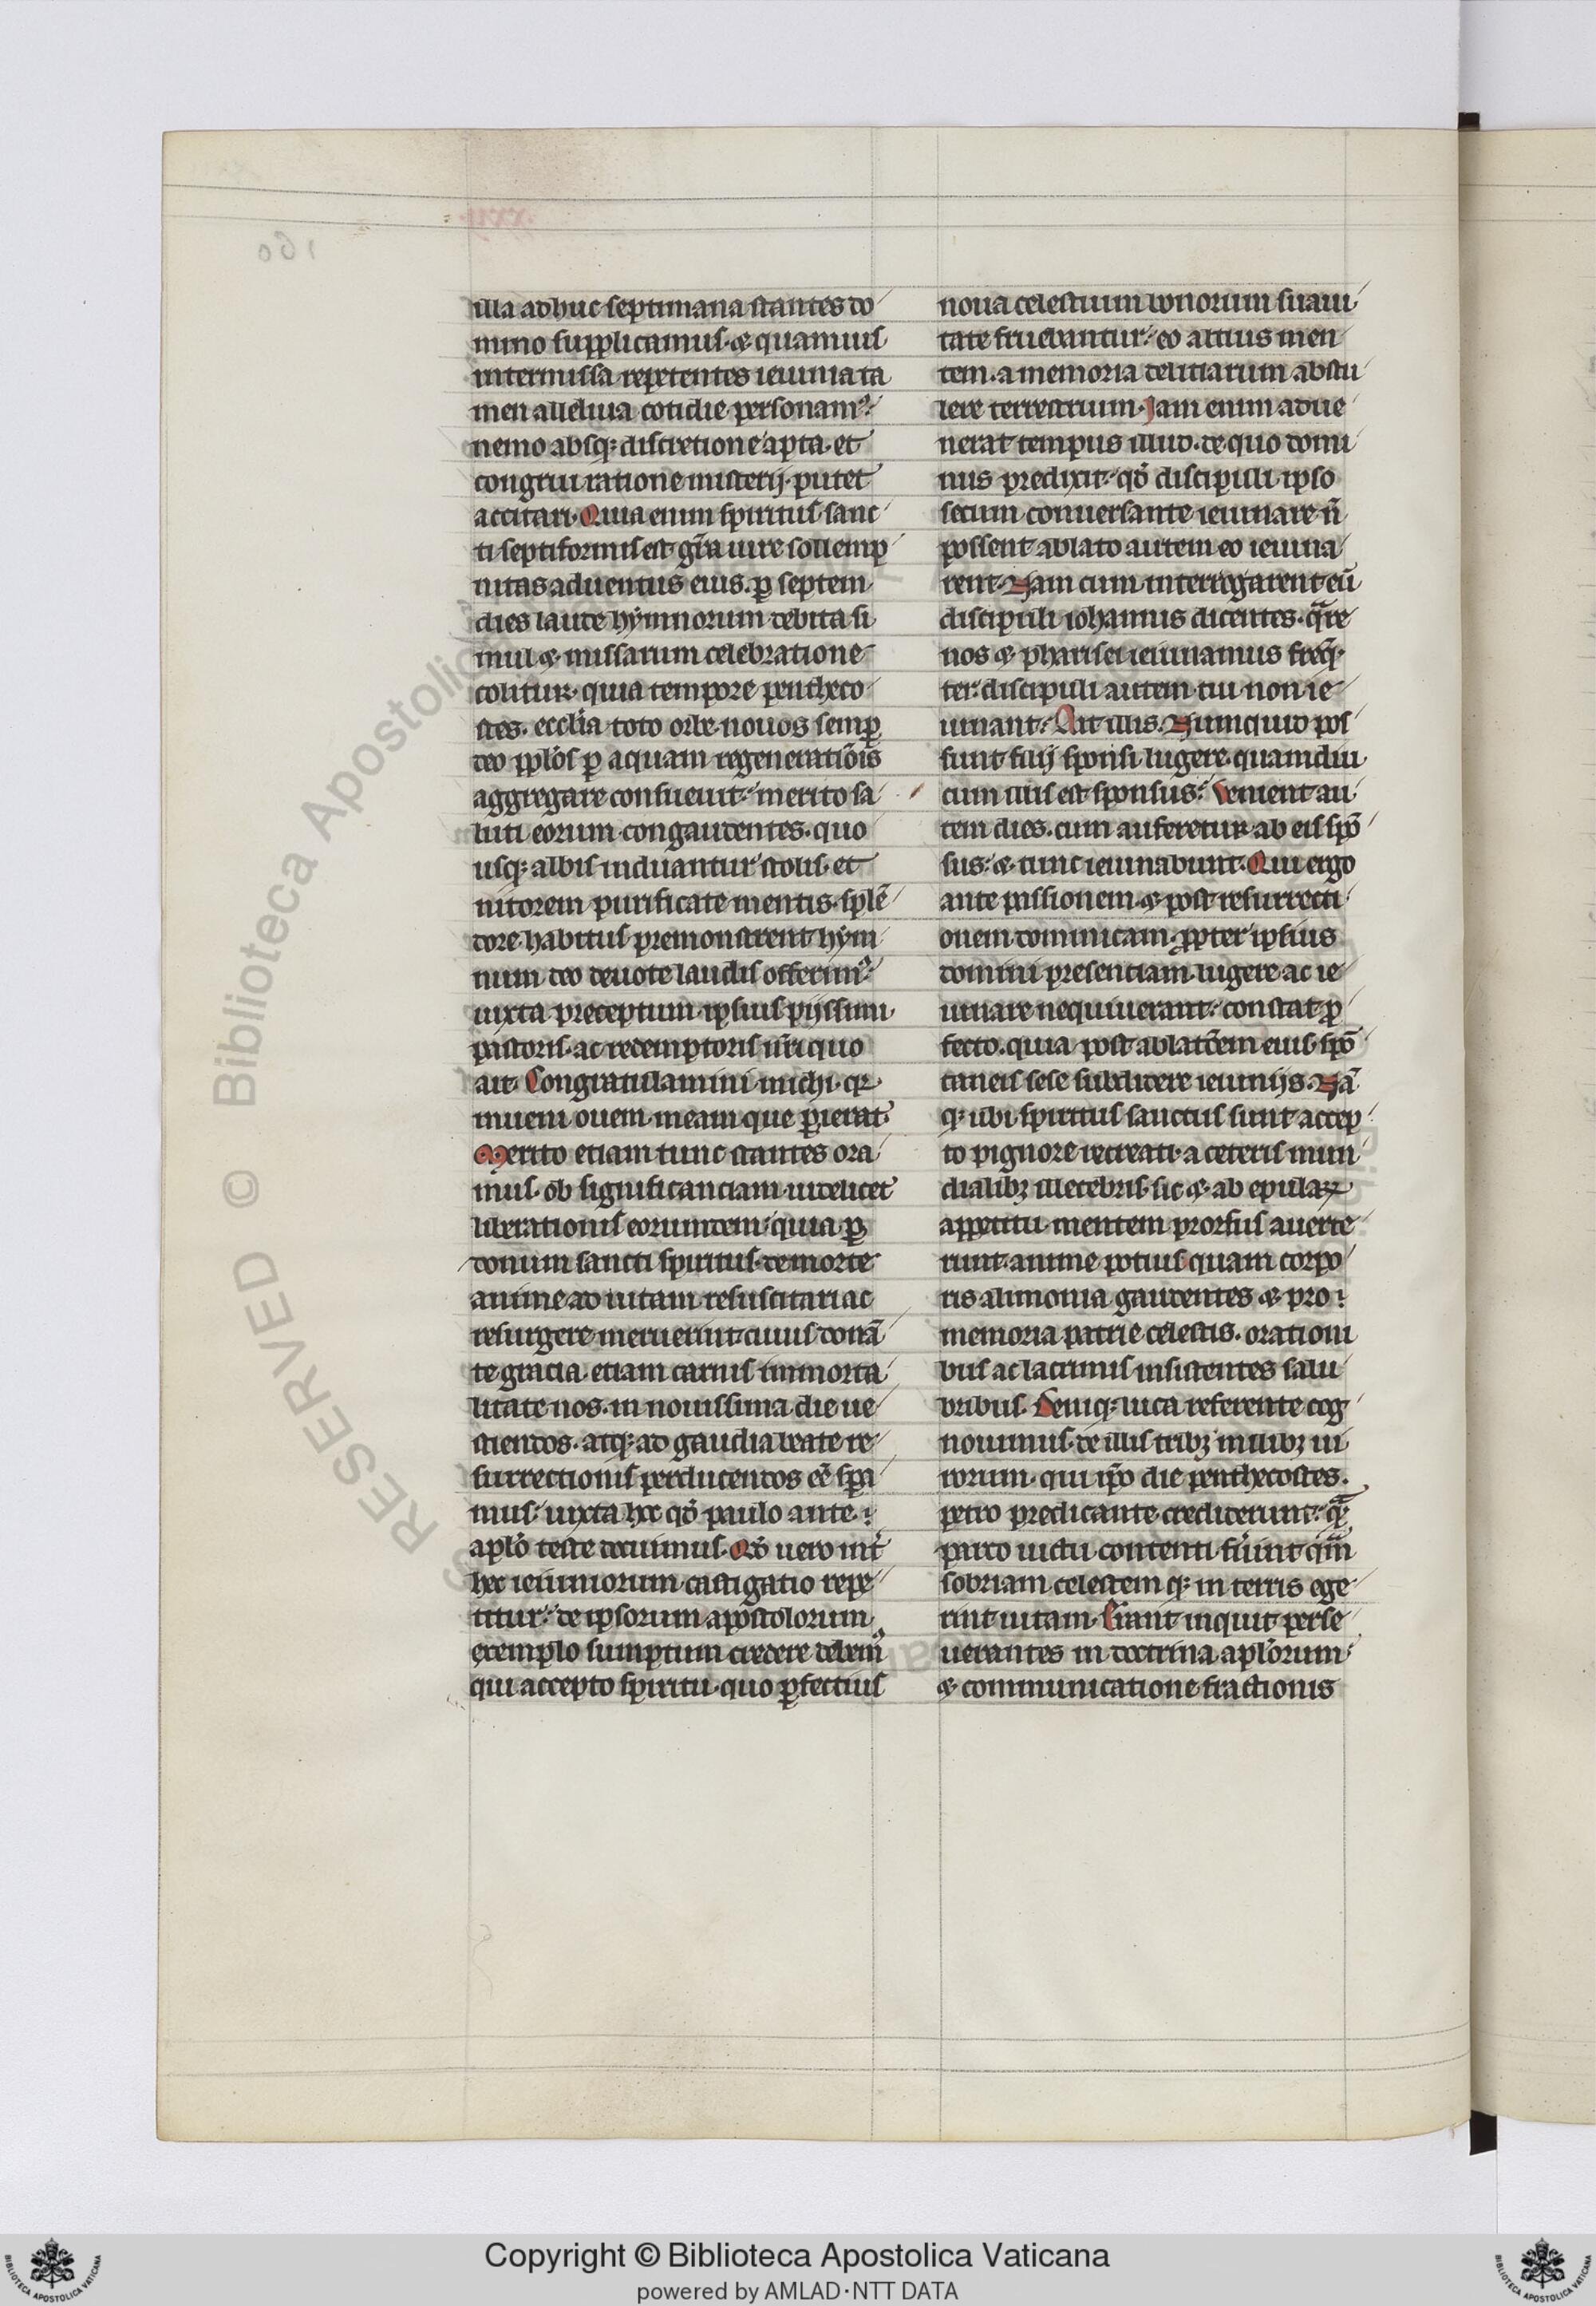 illa adhuc septimana stantes do
mino supplicamus. & quamuis
intermissa repetentes ieiunia ta
men alleluia cotidie personamꝰ.
nemo absq; discretione apta. et
congrui ratione misterij. putet
accitari. Quia enim spiritus sanc
ti septiformis est gr̃a iure sollemp
nitas aduentus eius. ꝑ septem
dies laude hymnorum debita si
mul & missarum celebratione
colitur. quia tempore pentheco
stes. eccl̃ia toto orbe nouos semꝑ
deo ppl̃os ꝑ aquam regeneratiõis
aggregare consueuit. merito sa
luti eorum congaudentes. quo
usq; albis induantur stolis. et
nitorem purificate mentis. splẽ
dore habitus premonstrent hym
num deo deuote laudis offerimꝰ.
iuxta preceptum ipsius pijssimi
pastoris. ac redemptoris nr̃i quo
ait. Congratulamini michi. qꝛ
inueni ouem meam que ꝑierat.
Merito etiam tunc stantes ora
mus. ob significanciam uidelicet
liberationis eorumdem. quia ꝑ
donum sancti spiritus. de morte
anime ad uitam resuscitari ac
resurgere meruerint. cuius donã
te gracia. etiam carnis immorta
litate nos. in nouissima die ue
stiendos. atq; ad gaudia beate re
surrectionis perducendos eẽ spa
mus. iuxta hec qđ paulo ante
apl̃o teste docuimus. Qđ uero int̃
hec ieiuniorum castigatio repe
titur. de ipsorum apostolorum
exemplo sumptum credere debemꝰ
qui accepto spiritu. quo ꝑfectius
noua celestium bonorum suaui
tate fruebantur. eo altius men
tem. a memoria delitiarum abstu
lere terrestrium. Jam enim adue
nerat tempus illud. de quo domi
nus predixit. qđ discipuli ipso
secum conuersante ieiunare ñ
possent ablato autem eo ieiuna
rent. Nam cum interrogarent eũ
discipuli iohannis dicentes. q̃re
nos & pharisei ieiunamus freq̃.
ter. discipuli autem tui non ie
iunant. Ait illis. Numquid pos
sunt filij sponsi lugere. quamdiu
cum illis est sponsus. Venient au
tem dies. cum auferetur ab eis spõ
sus. & tunc ieiunabunt. Qui ergo
ante passionem. & post resurrecti
onem dominicam. ꝓpter ipsius
domini presentiam lugere ac ie
iunare nequiuerant. constat ꝓ
fecto. quia post ablatõem eius. spõ
taneis sese subdidere ieiunijs. Nã
q; ubi spiritus sanctus sunt accep
to pignore recreati. a ceteris mun
dialibꝫ illecebris. sic & ab epulaꝝ
appetitu mentem prorsus auerte
runt. anime potius quam corpo
ris alimonia gaudentes & pro
memoria patrie celestis. orationi
bus ac lacrimis insistentes salu
bribus. Deniq; luca referente cog
nouimus. de illis tribꝫ milibꝫ ui
rorum. qui ip̃o die penthecostes.
petro predicante crediderunt. q̃
parco uictu contenti fũint qm̃
sobriam celestem q; in terris ege
rint uitam. Erant inquit perse
uerantes in doctrina apl̃orum.
& communicatione fractionis
Copyright © Biblioteca Apostolica Vaticana
powered by AMLAD·NTT DATA